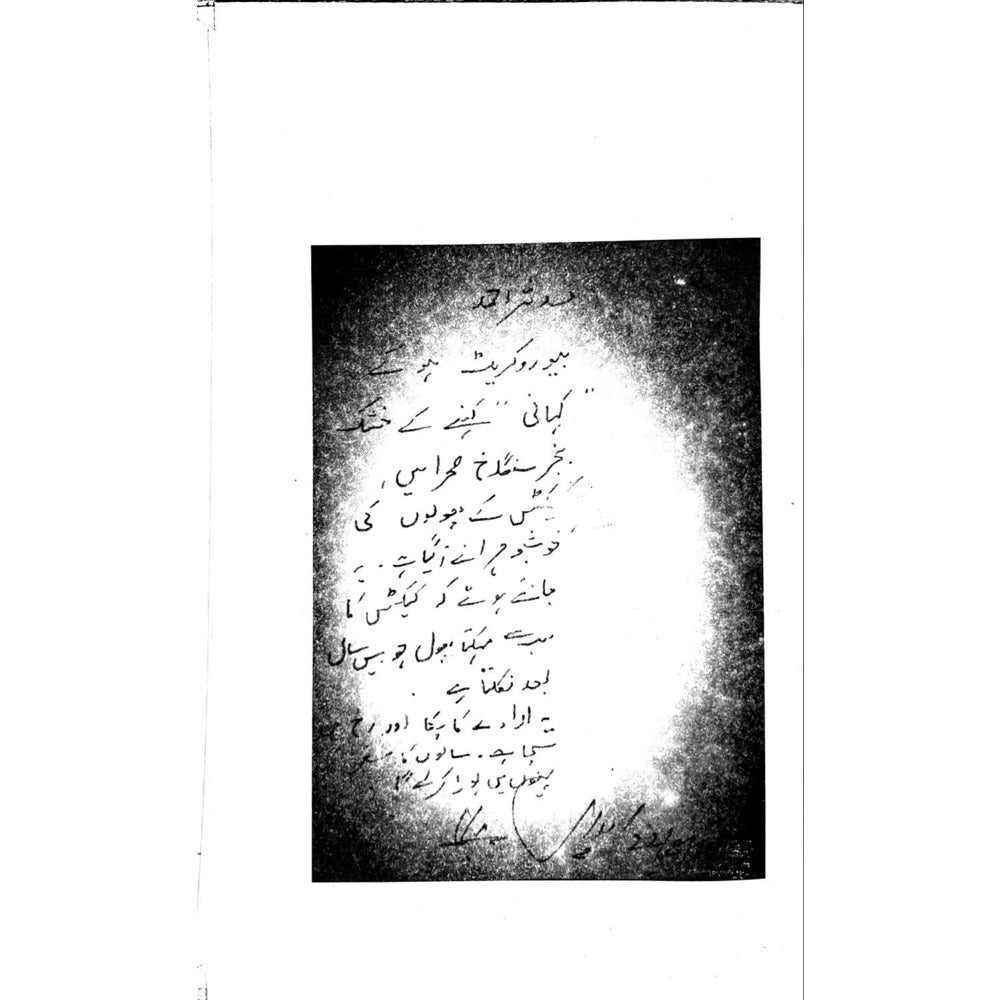 مدثر احمد
بیوروکریٹ ہو کے
"کہانی" کہنے کے خشک
بنجر سنگلاخ صحرا میں
کیکٹس کے پھولوں کی
خوشبو چرانے آ گیا ہے۔۔ یہ
جانتے ہوئے کہ کیکٹس کا
مہکتا پھول جو بیس سال
بعد نکلتا ہے۔
یہ ارادے کا پکا اور رخ
سچا ہے۔ سالوں کا سفر
میں پورا کرلے گا